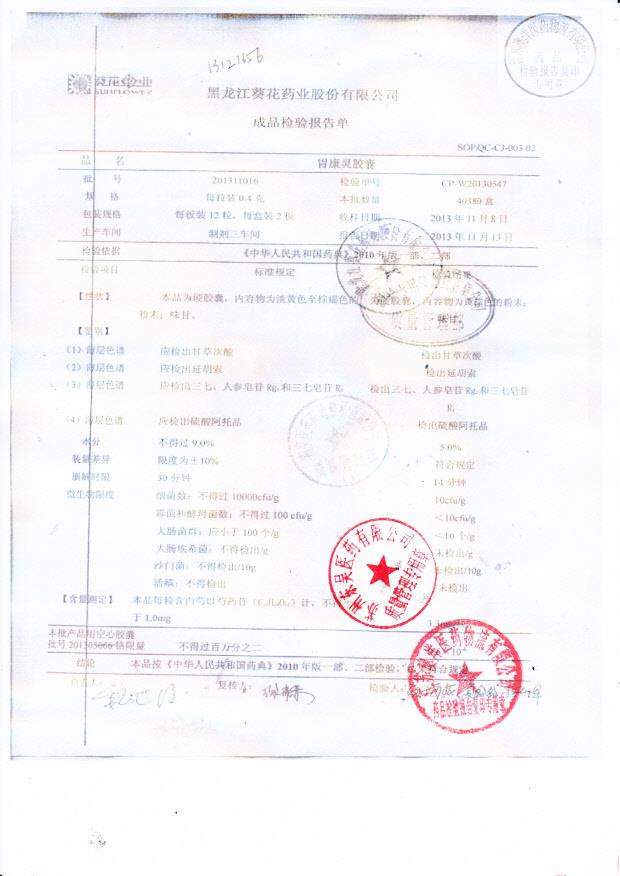 13121656
医药物流有限公司
药品
检验报告复印
专用章
葵花药业
SUNFLOWER
黑龙江葵花药业股份有限公司
成品检验报告单
SOP.QC-CJ-003-02
品 名 胃康灵胶囊
批 号 201311016 检验单号 CP-W20130547
规 格 每粒装 0.4 克 本批数量 40380 盒
包装规格 每板装 12 粒，每盒装 2 板 收样日期 2013 年 11 月 8 日
生产车间 制剂三车间 报告日期 2013 年 11 月 13 日
检验依据 《中华人民共和国药典》2010 年版一部、二部
检验项目 标准规定 检验结果
【性状】 本品为硬胶囊，内容物为淡黄色至棕褐色的 为硬胶囊，内容物为黄棕色的粉末；
粉末；味甘。 味甘。
质量管理部
【鉴别】
（1）薄层色谱 应检出甘草次酸 检出甘草次酸
（2）薄层色谱 应检出延胡索 检出延胡索
（3）薄层色谱 应检出三七、人参皂苷 Rg₁ 和三七皂苷 R₁ 检出三七、人参皂苷 Rg₁ 和三七皂苷
R₁
（4）薄层色谱 应检出硫酸阿托品 检出硫酸阿托品
水分 不得过 9.0% 5.0%
装量差异 限度为±10% 符合规定
崩解时限 30 分钟 14 分钟
微生物限度 细菌数：不得过 10000cfu/g 10cfu/g
霉菌和酵母菌数：不得过 100 cfu/g ＜10cfu/g
大肠菌群：应小于 100 个/g ＜10 个/g
大肠埃希菌：不得检出/g 未检出/g
沙门菌：不得检出/10g 未检出/10g
活螨：不得检出 未检出
苏州东吴医药有限公司
质量管理专用章
【含量测定】 本品每粒含白芍以芍药苷（C₂₃H₂₈O₁₁）计，不得少
于 1.0mg 3.3mg
本批产品用空心胶囊
批号 201305066 铬限量 不得过百万分之二
结论 本品按《中华人民共和国药典》2010 年版一部、二部检验，符合规定
负责人： 复核人： 检验人：
医药物流有限公司
药品检验报告复印专用章